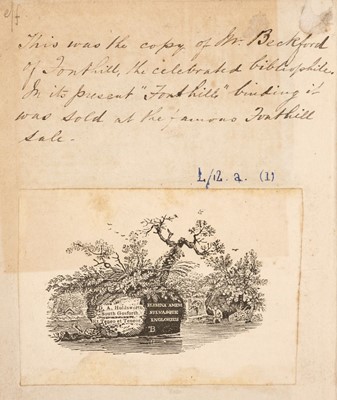 This was the copy of Mr. Beckford
of Fonthill, the celebrated bibliophile.
In its present "Fonthill" binding it
was sold at the famous Fonthill
sale.
L/12. a. (1)
A. Holdsworth
South Gosforth.
FLUMINA AMEM
SYLVASQUE
INGLORIUS
B